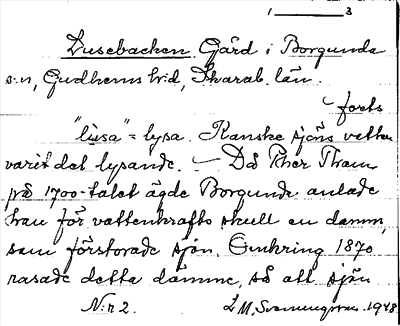 1 3
Lusebacken. Gård i Borgunda
s:n, Gudhems h:d, Skarab. län.
forts
"lusa" = lysa. Kanske sjöns vatten
varit det lysande. — Då Pher Tham
på 1700-talet ägde Borgunda anlade
han för vattenkrafts skull en damm,
som förstorade sjön. Omkring 1870
rasade detta dämme, så att sjön
N:r 2. L M, 1948